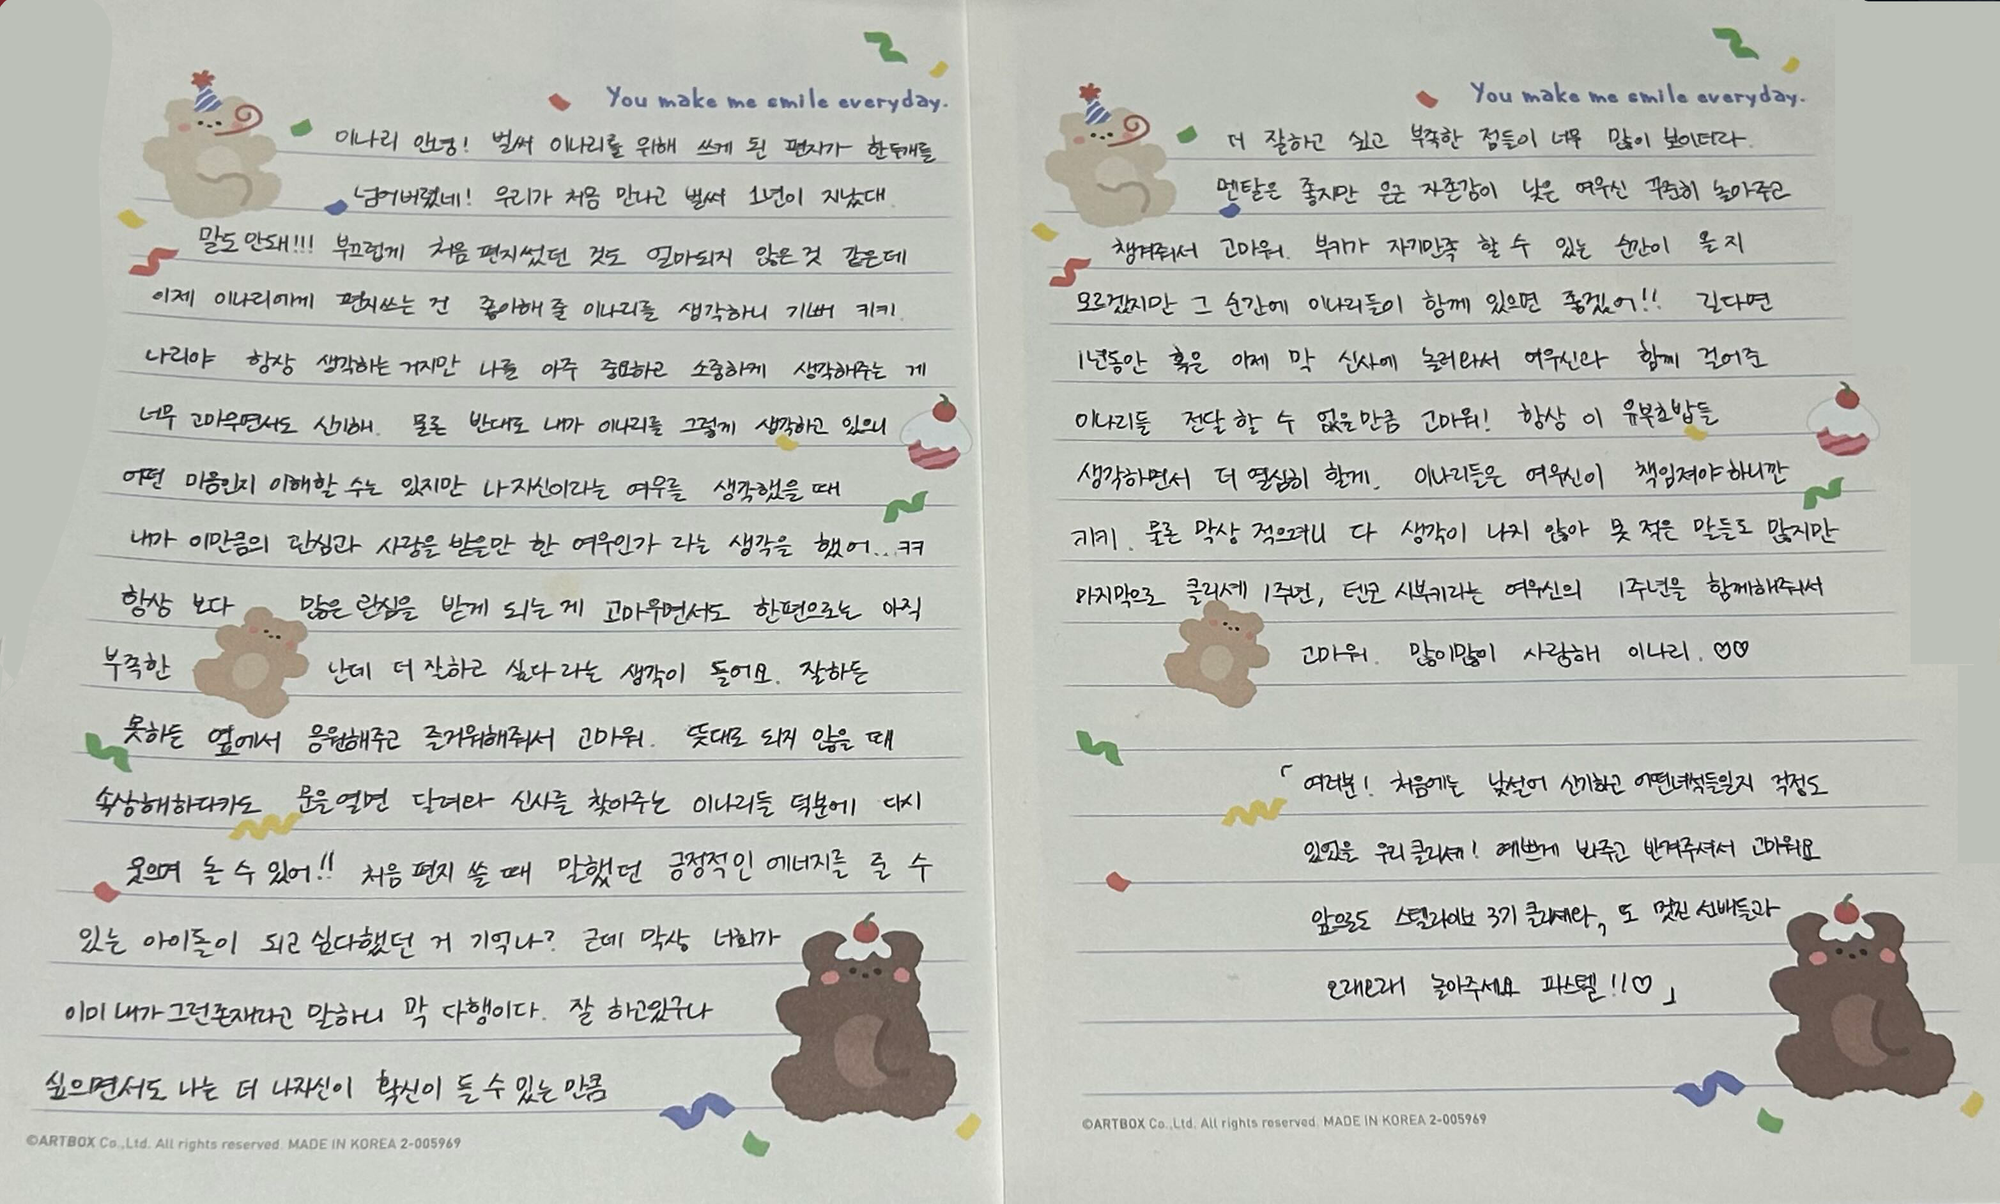 You make me smile everyday.
이나리 안녕! 벌써 이나리를 위해 쓰게 된 편지가 한두개를
넘어버렸네! 우리가 처음 만나고 벌써 1년이 지났대.
말도 안돼!!! 부끄럽게 처음 편지썼던 것도 얼마되지 않은 것 같은데
이제 이나리에게 편지쓰는 건 좋아해 줄 이나리를 생각하니 기뻐 키키.
나리야 항상 생각하는 거지만 나를 아주 중요하고 소중하게 생각해주는 게
너무 고마우면서도 신기해. 물론 반대로 내가 이나리를 그렇게 생각하고 있으니
어떤 마음인지 이해할 수는 있지만 나 자신이라는 여우를 생각했을 때
내가 이만큼의 관심과 사랑을 받을만 한 여우인가 라는 생각을 했어...ㅋㅋ
항상 보다 많은 관심을 받게 되는 게 고마우면서도 한편으로는 아직
부족한 난데 더 잘하고 싶다 라는 생각이 들어요. 잘하든
못하든 옆에서 응원해주고 즐거워해줘서 고마워. 뜻대로 되지 않을 때
속상해하다가도 문을 열면 달려와 신사를 찾아주는 이나리들 덕분에 다시
웃으며 놀 수 있어!! 처음 편지 쓸 때 말했던 긍정적인 에너지를 줄 수
있는 아이돌이 되고 싶다했던 거 기억나? 근데 막상 너희가
이미 내가 그런존재라고 말하니 막 다행이다. 잘 하고있구나
싶으면서도 나는 더 나자신이 확신이 들 수 있는 만큼
©ARTBOX Co.,Ltd. All rights reserved. MADE IN KOREA 2-005969
You make me smile everyday.
더 잘하고 싶고 부족한 점들이 너무 많이 보이더라.
멘탈은 좋지만 은근 자존감이 낮은 여우신 꾸준히 놀아주고
챙겨줘서 고마워. 부키가 자기만족 할 수 있는 순간이 올 지
모르겠지만 그 순간에 이나리들이 함께 있으면 좋겠어!! 길다면
1년동안 혹은 이제 막 신사에 놀러와서 여우신과 함께 걸어준
이나리들 전달 할 수 없을만큼 고마워! 항상 이 유부초밥들
생각하면서 더 열심히 할게. 이나리들은 여우신이 책임져야하니깐
키키. 물론 막상 적으려니 다 생각이 나지 않아 못 적은 말들도 많지만
마지막으로 클리셰 1주년, 텐코 시부키라는 여우신의 1주년을 함께해줘서
고마워. 많이많이 사랑해 이나리. ♡♡
「여러분! 처음에는 낯설어 신기하고 어떤녀석들일지 걱정도
있었을 우리 클리셰! 예쁘게 봐주고 반겨주셔서 고마워요
앞으로도 스텔라이브 3기 클리셰와, 또 멋진 선배들과
오래오래 놀아주세요 파스텔!!♡」
©ARTBOX Co.,Ltd. All rights reserved. MADE IN KOREA 2-005969